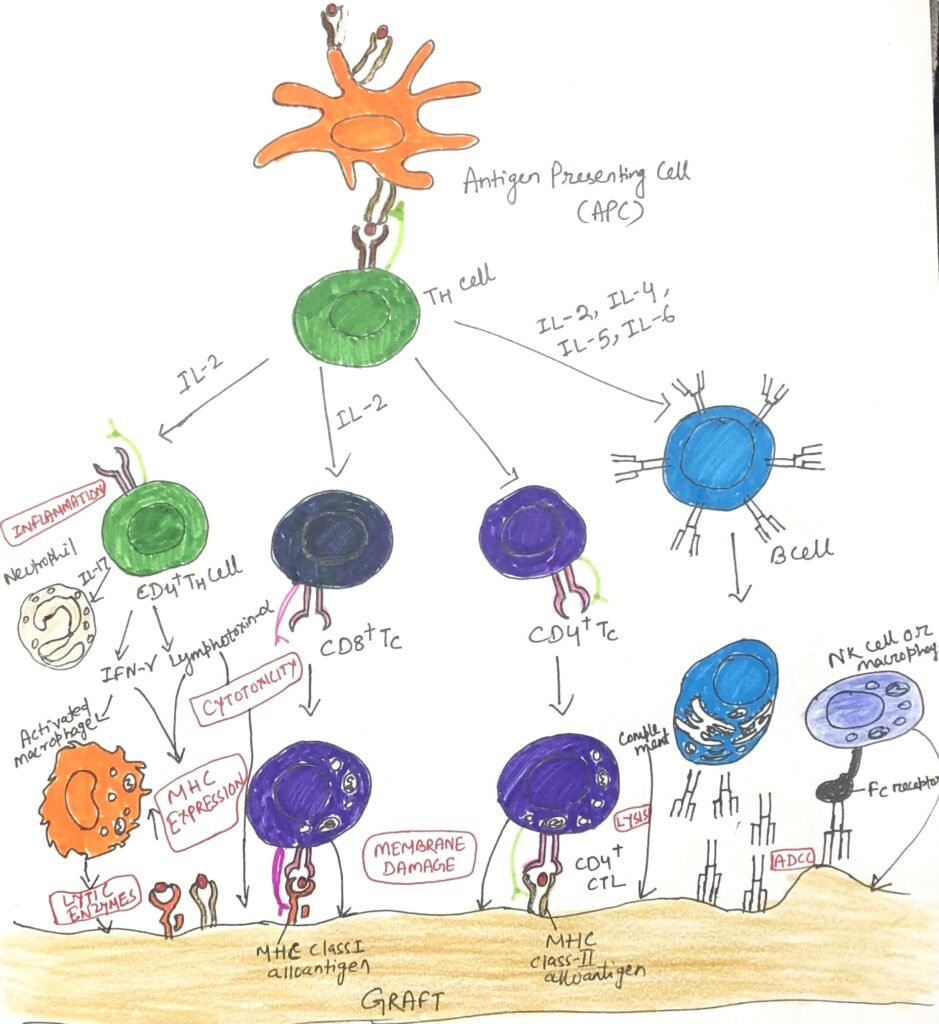 Antigen Presenting Cell
(APC)
TH cell
IL-2, IL-4,
IL-5, IL-6
IL-2
IL-2
INFLAMMATION
Neutrophil
IL-17
CD4+ TH cell
IFN-γ
Lymphotoxin-α
CD8+ Tc
CD4+ Tc
B cell
CYTOTOXICITY
Activated
macrophage
MHC
EXPRESSION
LYTIC
ENZYMES
MEMBRANE
DAMAGE
Comple
ment
LYSIS
CD4+
CTL
NK cell or
macrophag
Fc receptor
ADCC
MHC class I
alloantigen
MHC
class-II
alloantigen
GRAFT